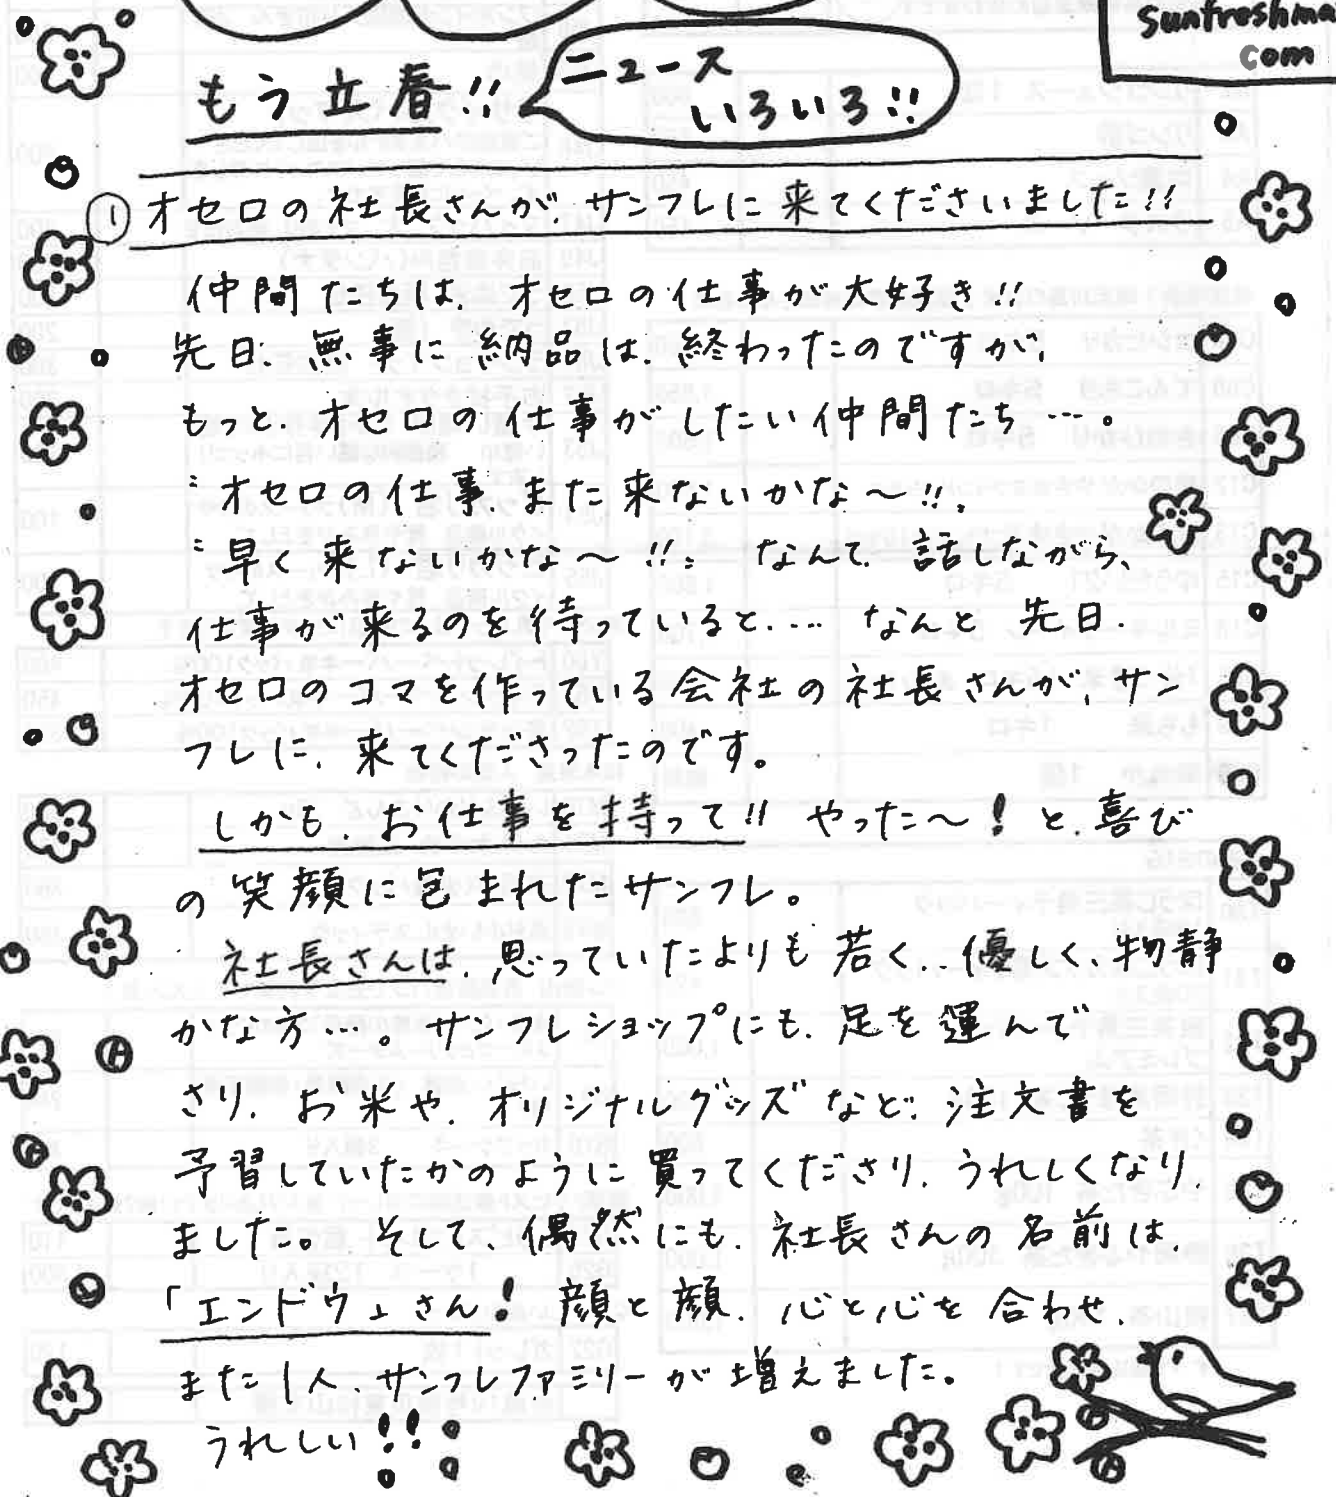 Sunfreshma
com
もう立春!!
ニュース
いろいろ!!
① オセロの社長さんが、サンフレに来てくださいました!!
仲間たちは、オセロの仕事が大好き!!
先日、無事に納品は、終わったのですが、
もっと、オセロの仕事がしたい仲間たち…。
"オセロの仕事、また来ないかな〜!!、
"早く来ないかな〜!!" なんて、話しながら、
仕事が来るのを待っていると…. なんと先日、
オセロのコマを作っている会社の社長さんが、サン
フレに、来てくださったのです。
しかも、お仕事を持って!! やった〜! と、喜び
の笑顔に包まれたサンフレ。
社長さんは、思っていたよりも若く、優しく、物静
かな方…。サンフレショップにも、足を運んで
さり、お米や、オリジナルグッズなど、注文書を
予習していたかのように買ってくださり、うれしくなり
ました。そして、偶然にも、社長さんの名前は、
「エンドウ」さん! 顔と顔、心と心を合わせ、
また1人、サンフレファミリーが増えました。
うれしい!!